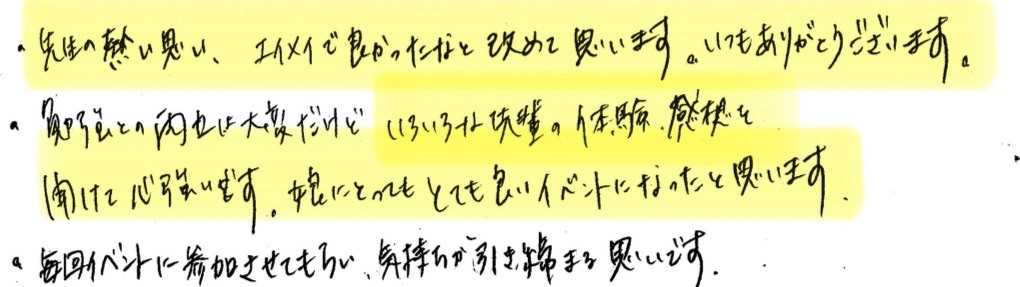 ・先生の熱い思い、エイメイで良かったなと改めて思います。いつもありがとうございます。
・勉強との両立は大変だけど いろいろな先輩の体験、感想を
聞けて心強いです。娘にとってもとても良いイベントになったと思います。
・毎回イベントに参加させてもらい、気持ちが引き締まる思いです。